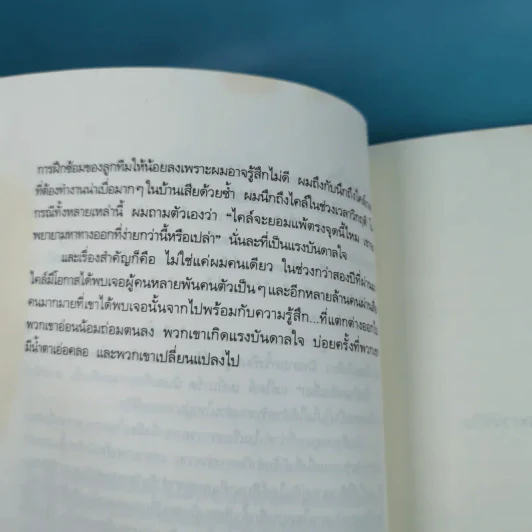 การฝึกซ้อมของลูกทีมให้น้อยลงเพราะผมอาจรู้สึกไม่ดี ผมถึงกับนึกถึงไคล์
ที่ต้องทำงานน่าเบื่อมากๆ ในบ้านเสียด้วยซ้ำ ผมนึกถึงไคล์ในช่วงเวลาวิกฤติ
กรณีทั้งหลายเหล่านี้ ผมถามตัวเองว่า “ไคล์จะยอมแพ้ตรงจุดนี้ไหม
พยายามหาทางออกที่ง่ายกว่านี้หรือเปล่า” นั่นละที่เป็นแรงบันดาลใจ
และเรื่องสำคัญก็คือ ไม่ใช่แค่ผมคนเดียว ในช่วงกว่าสองปีที่ผ่านมา
ไคล์มีโอกาสได้พบเจอผู้คนหลายพันคนตัวเป็นๆ และอีกหลายล้านคนผ่าน
คนมากมายที่เขาได้พบเจอนั้นจากไปพร้อมกับความรู้สึก...ที่แตกต่างออกไป
พวกเขาอ่อนน้อมถ่อมตนลง พวกเขาเกิดแรงบันดาลใจ บ่อยครั้งที่พวกเขา
มีน้ำตาเอ่อคลอ และพวกเขาเปลี่ยนแปลงไป